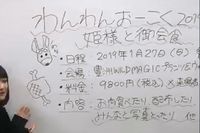 わんわんおーこく 2019
姫様と御会食
・日程：2019年1月27日(日)
・会場：豊洲WILDMAGIC
・料金：9800円(税込)
・内容：お肉食べたり
みんなと写真とったり 他